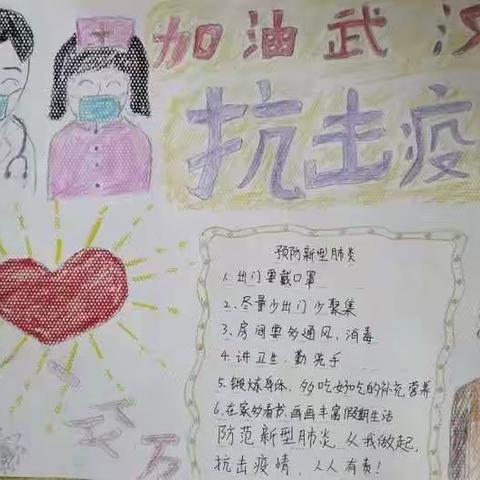 加油武汉
抗击疫
预防新型肺炎
1、出门要戴口罩
2、尽量少出门少聚集
3、房间要多通风、消毒
4、讲卫生、勤洗手
5、锻炼身体、多吃好吃的补充营养
6、在家多看书、画画丰富假期生活
防范新型肺炎，从我做起，
抗击疫情，人人有责！
万